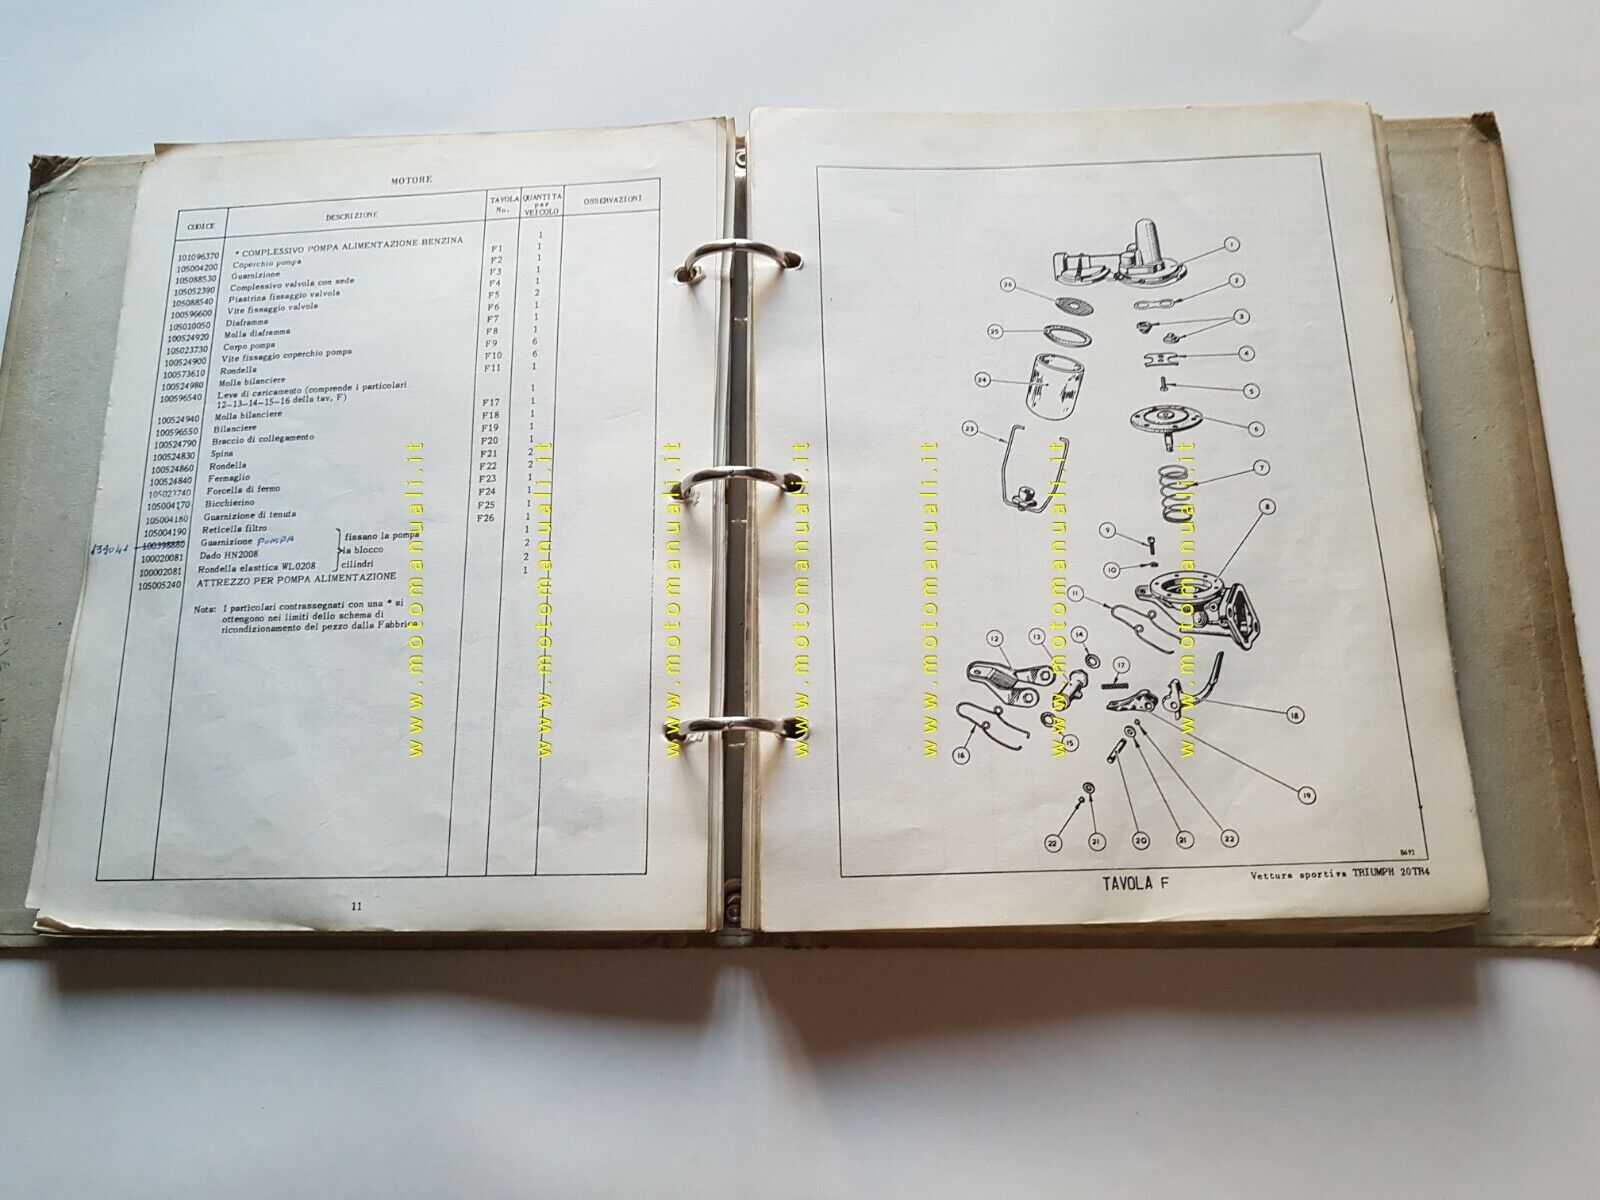 MOTORE
CODICE DESCRIZIONE TAVOLA No. QUANTITA per VEICOLO OSSERVAZIONI
101096370 * COMPLESSIVO POMPA ALIMENTAZIONE BENZINA 1
105004200 Coperchio pompa F1 1
105088530 Guarnizione F2 1
105052390 Complessivo valvola con sede F3 1
105088540 Piastrina fissaggio valvola F4 1
100596600 Vite fissaggio valvola F5 2
105010050 Diaframma F6 1
100524920 Molla diaframma F7 1
105023730 Corpo pompa F8 1
100524900 Vite fissaggio coperchio pompa F9 6
100573610 Rondella F10 6
100524980 Molla bilanciere F11 1
100596540 Leva di caricamento (comprende i particolari
12-13-14-15-16 della tav. F) 1
100524940 Molla bilanciere F17 1
100596550 Bilanciere F18 1
100524790 Braccio di collegamento F19 1
100524830 Spina F20 1
100524860 Rondella F21 2
100524840 Fermaglio F22 2
105023740 Forcella di fermo F23 1
105004170 Bicchierino F24 1
105004180 Guarnizione di tenuta F25 1
105004190 Reticella filtro F26 1
100398880 Guarnizione POMPA fissano la pompa 1
100020081 Dado HN2008 ia blocco 2
100002081 Rondella elasttica WL0208 cilindri 2
105005240 ATTREZZO PER POMPA ALIMENTAZIONE 1
Nota: I particolari contrassegnati con una * si
ottengono nei limiti dello schema di
ricondizionamento del pezzo dalla Fabbrica
11
1
2
3
4
5
6
7
8
9
10
11
12
13
14
15
16
17
18
19
20
21
22
21
22
23
24
25
26
8692
TAVOLA F
Vettura sportiva TRIUMPH 20TR4
www.motomanuali.it
www.motomanuali.it
www.motomanuali.it
www.motomanuali.it
www.motomanuali.it
www.motomanuali.it
www.motomanuali.it